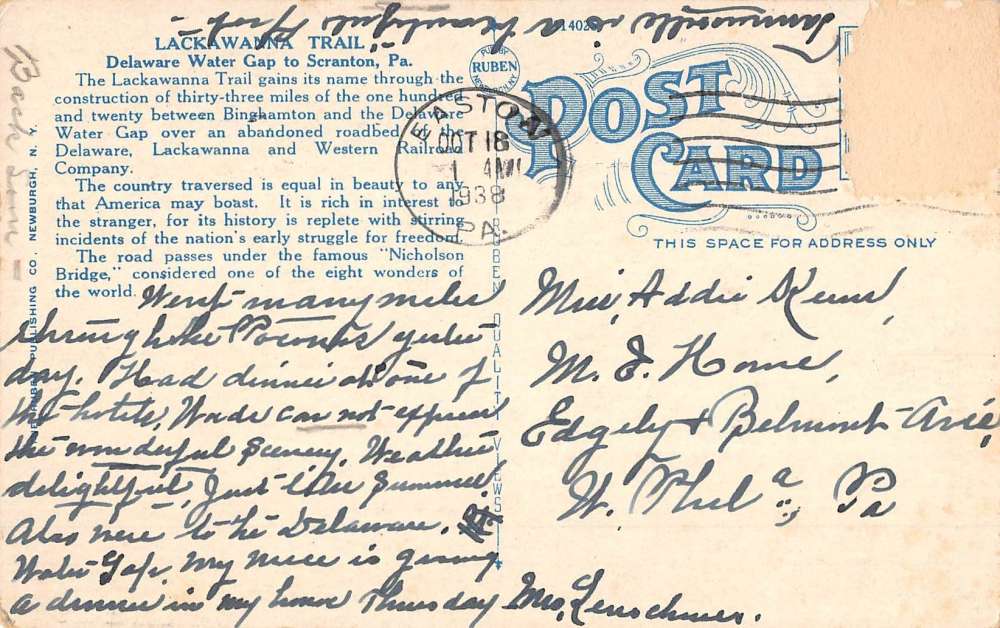 LACKAWANNA TRAIL
Delaware Water Gap to Scranton, Pa.
The Lackawanna Trail gains its name through the
construction of thirty-three miles of the one hundred
and twenty between Binghamton and the Delaware
Water Gap over an abandoned roadbed of the
Delaware, Lackawanna and Western Railroad
Company.
The country traversed is equal in beauty to any
that America may boast. It is rich in interest to
the stranger, for its history is replete with stirring
incidents of the nation's early struggle for freedom.
The road passes under the famous "Nicholson
Bridge," considered one of the eight wonders of
the world.
Went many miles
through the Poconos yester
day. Had dinner at one of
the hotels, Words can not express
the wonderful scenery. Weather
delightful, Just like Summer.
Also were to the Delaware.
Water Gap. My niece is giving
a dinner in my honor Thursday
Mrs.
is a beautiful spot
PUB. BY
RUBEN
NEWBURGH, N.Y.
POST
CARD
EASTON
OCT 18
1 AM
1938
PA.
THIS SPACE FOR ADDRESS ONLY
PUBLISHING CO. NEWBURGH, N. Y.
RUBEN QUALITY VIEWS
Miss, Addie
M. E. Home,
Edgely + Belmont Ave,
W. Phila., Pa